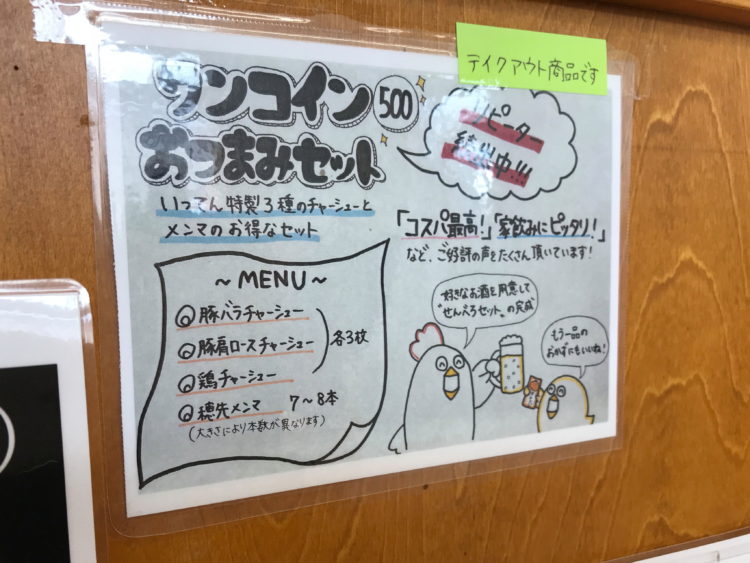 テイクアウト商品です
ワンコイン 500
おつまみセット
リピーター
続出中!!!
いってん特製3種のチャーシューと
メンマのお得なセット
「コスパ最高!」「家飲みにピッタリ!」
など、ご好評の声をたくさん頂いています!
~MENU~
豚バラチャーシュー
豚肩ロースチャーシュー
鶏チャーシュー
各3枚
穂先メンマ 7~8本
(大きさにより本数が異なります)
好きなお酒を用意して
"せんべろセット"の完成
もう一品の
おかずにもいいね!